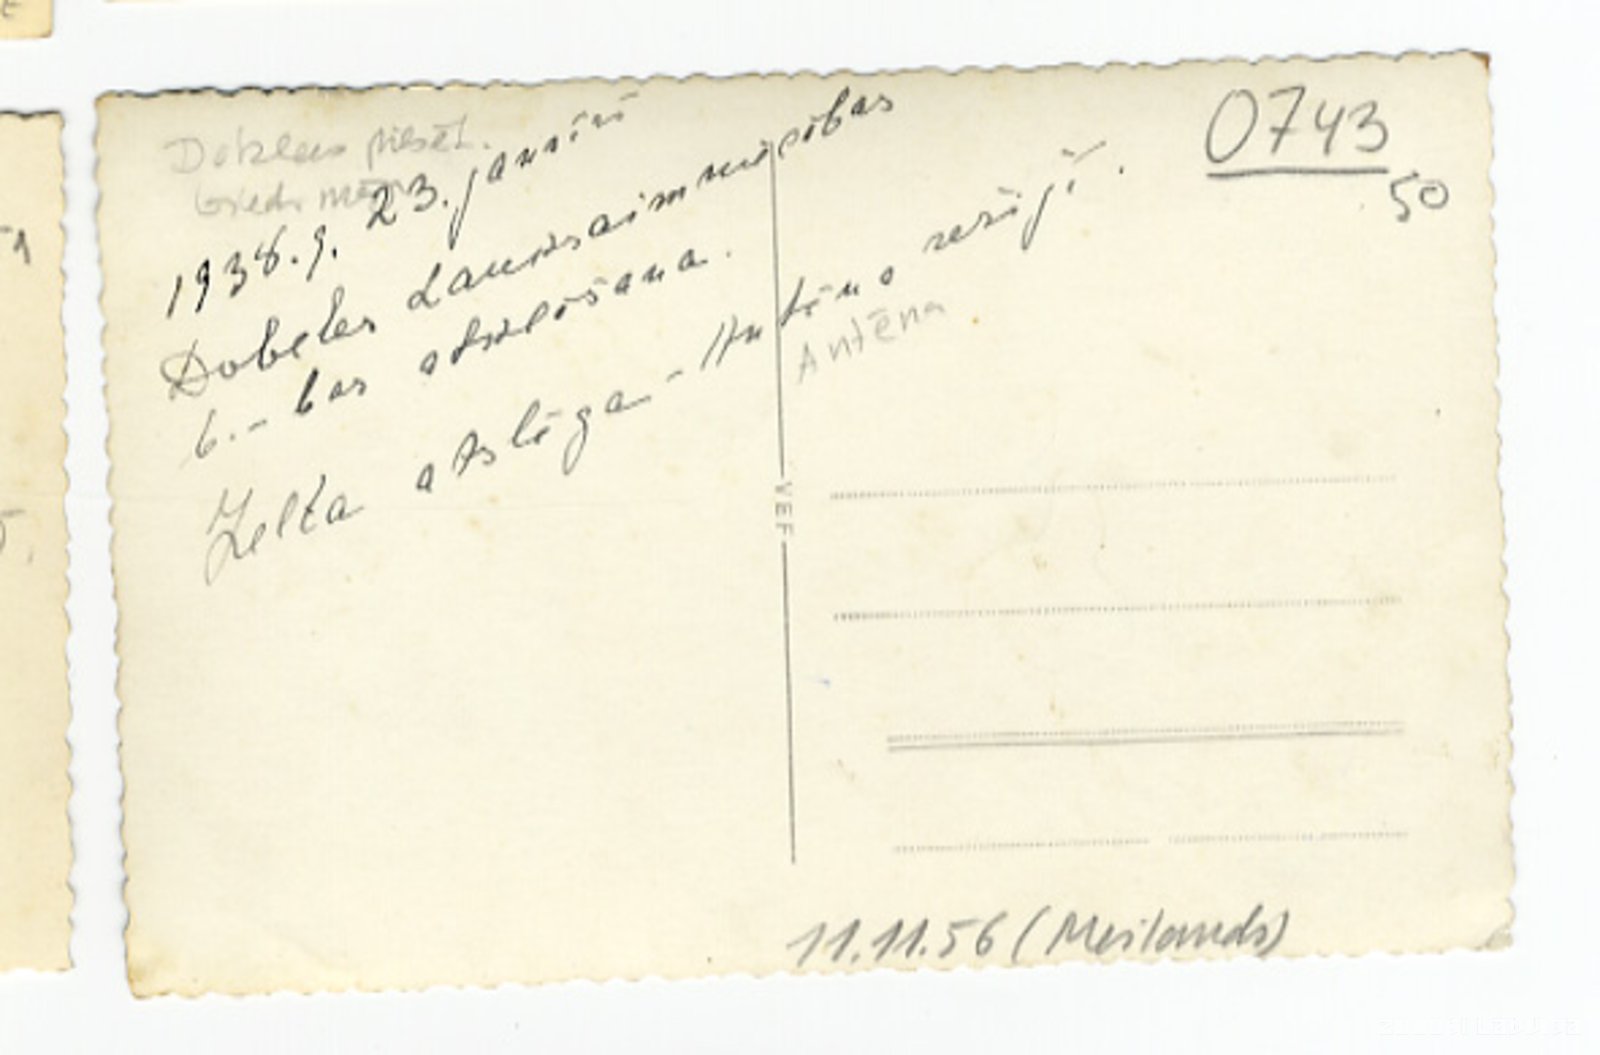 Dobeles pilsēt.
biedr.
1938.g. 23. janvārī
Dobeles Lauksaimniecības
b.-bas atklāšana.
Zelta atslēga - Antēna režijī.
Antēna
0743
50
VEF
11.11.56 (Meilands)